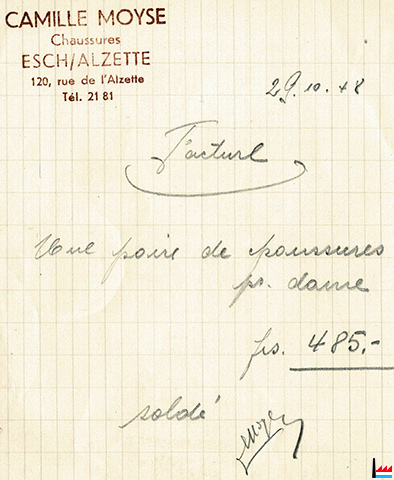 CAMILLE MOYSE
Chaussures
ESCH/ALZETTE
120, rue de l'Alzette
Tél. 21 81
29.10.48
Facture
Une paire de chaussures
pr. dame
frs. 485.-
soldé
Moyse